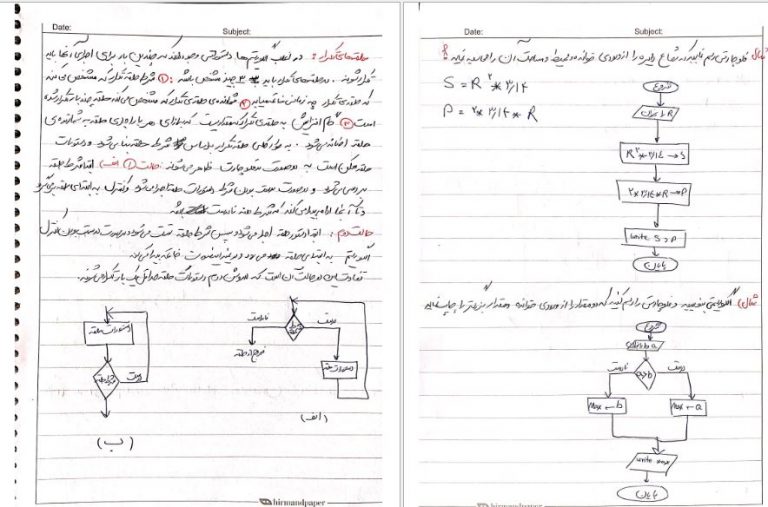 Date:
Subject:
مثال) فلوچارتی رسم نمایید که شعاع دایره را از ورودی خوانده و محیط و مساحت آن را محاسبه نماید
S = R² * ۳/۱۴
P = ۲ * ۳/۱۴ * R
شروع
R را بخوان
R² * ۳/۱۴ → S
۲ * ۳/۱۴ * R → P
write S, P
پایان
مثال) الگوریتمی بنویسید و فلوچارتی را رسم کنید که دو مقدار را از ورودی خوانده و مقدار بزرگتر را چاپ نماید
شروع
a b
a>b
درست
نادرست
Max ← b
Max ← a
write max
پایان
hirmandpaper
Date:
Subject:
حلقه‌های تکرار : در اغلب الگوریتم‌ها دستوراتی وجود دارند که چندین بار برای اجرای آنها باید
تکرار شوند . در حلقه‌های تکرار باید ۳ چیز مشخص باشد : ① شرط حلقه تکرار که مشخص می‌کند
که حلقه‌ی تکرار چه زمانی خاتمه میابد ② شمارنده‌ی حلقه‌ی تکرار که مشخص می‌کند حلقه چند بار تکرار شده
است ③ گام افزایش حلقه‌ی تکرار که مقداریست که به ازای هر بار اجرای حلقه به شمارنده‌ی
حلقه اضافه می‌شود . به طور کلی حلقه تکرار بر اساس شرط حلقه بنا می‌شود و دستورات
حلقه ممکن است به دو صورت در فلوچارت ظاهر می‌شوند . حالت ① الف) ابتدا شرط حلقه
بررسی می‌شود و در صورت درست بودن شرط دستورات حلقه اجرا می‌شود و کنترل به ابتدای حلقه برمی‌گردد
و تا آنجا ادامه پیدا می‌کند که شرط حلقه نادرست باشد
حالت دوم : ابتدا دستور حلقه اجرا می‌شود و سپس شرط حلقه تست می‌شود و در صورت درست بودن کنترل
الگوریتم به ابتدای حلقه می‌رود و در غیر اینصورت خاتمه پیدا می‌کند
تفاوت این دو حالت آن است که در روش دوم دستورات حلقه حداقل یک بار تکرار می‌شوند.
درست
نادرست
شرط حلقه
خروج از حلقه
دستورات حلقه
(الف)
دستورات حلقه
شرط حلقه
درست
(ب)
hirmandpaper